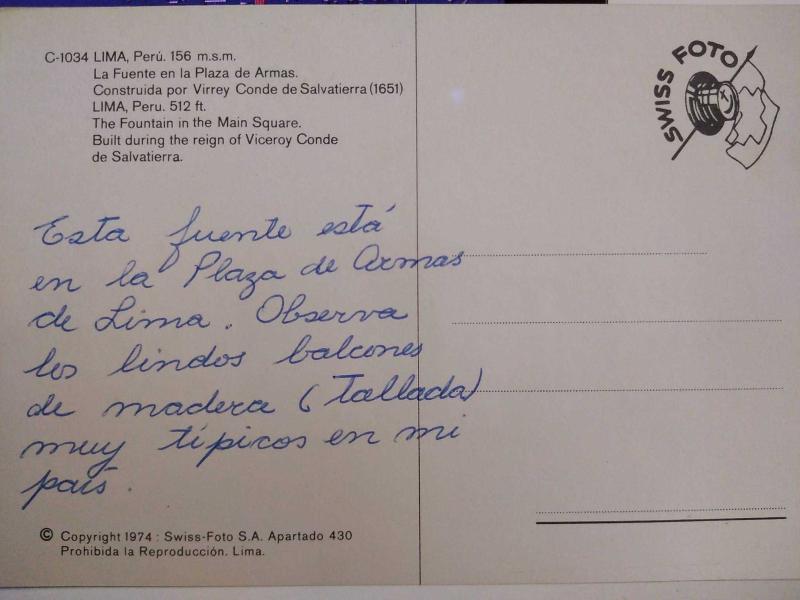 C-1034 LIMA, Perú. 156 m.s.m.
La Fuente en la Plaza de Armas.
Construida por Virrey Conde de Salvatierra (1651)
LIMA, Peru. 512 ft.
The Fountain in the Main Square.
Built during the reign of Viceroy Conde
de Salvatierra.
SWISS FOTO
Esta fuente está
en la Plaza de Armas
de Lima. Observa
los lindos balcones
de madera (Tallada)
muy típicos en mi
país.
© Copyright 1974 : Swiss-Foto S.A. Apartado 430
Prohibida la Reproducción. Lima.